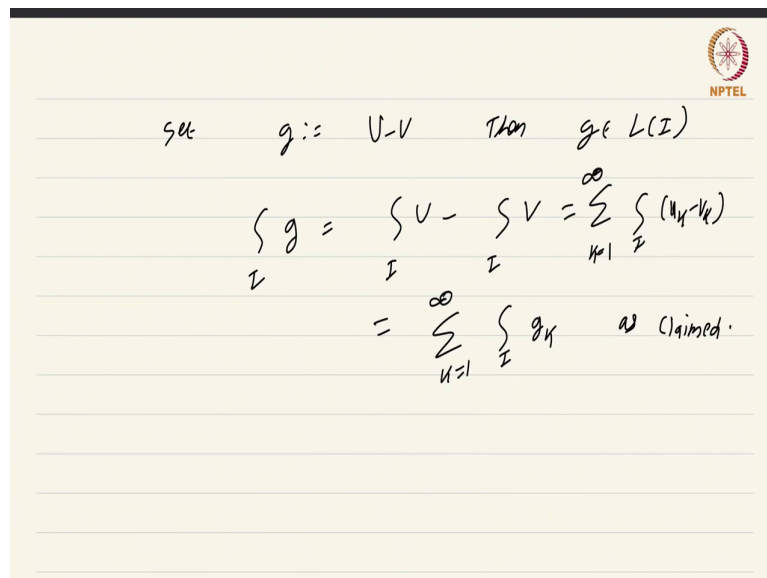 NPTEL
set g := U-V Then g ∈ L(I)
∫_I g = ∫_I U - ∫_I V = ∑_{k=1}^∞ ∫_I (u_k - v_k)
= ∑_{k=1}^∞ ∫_I g_k as claimed.